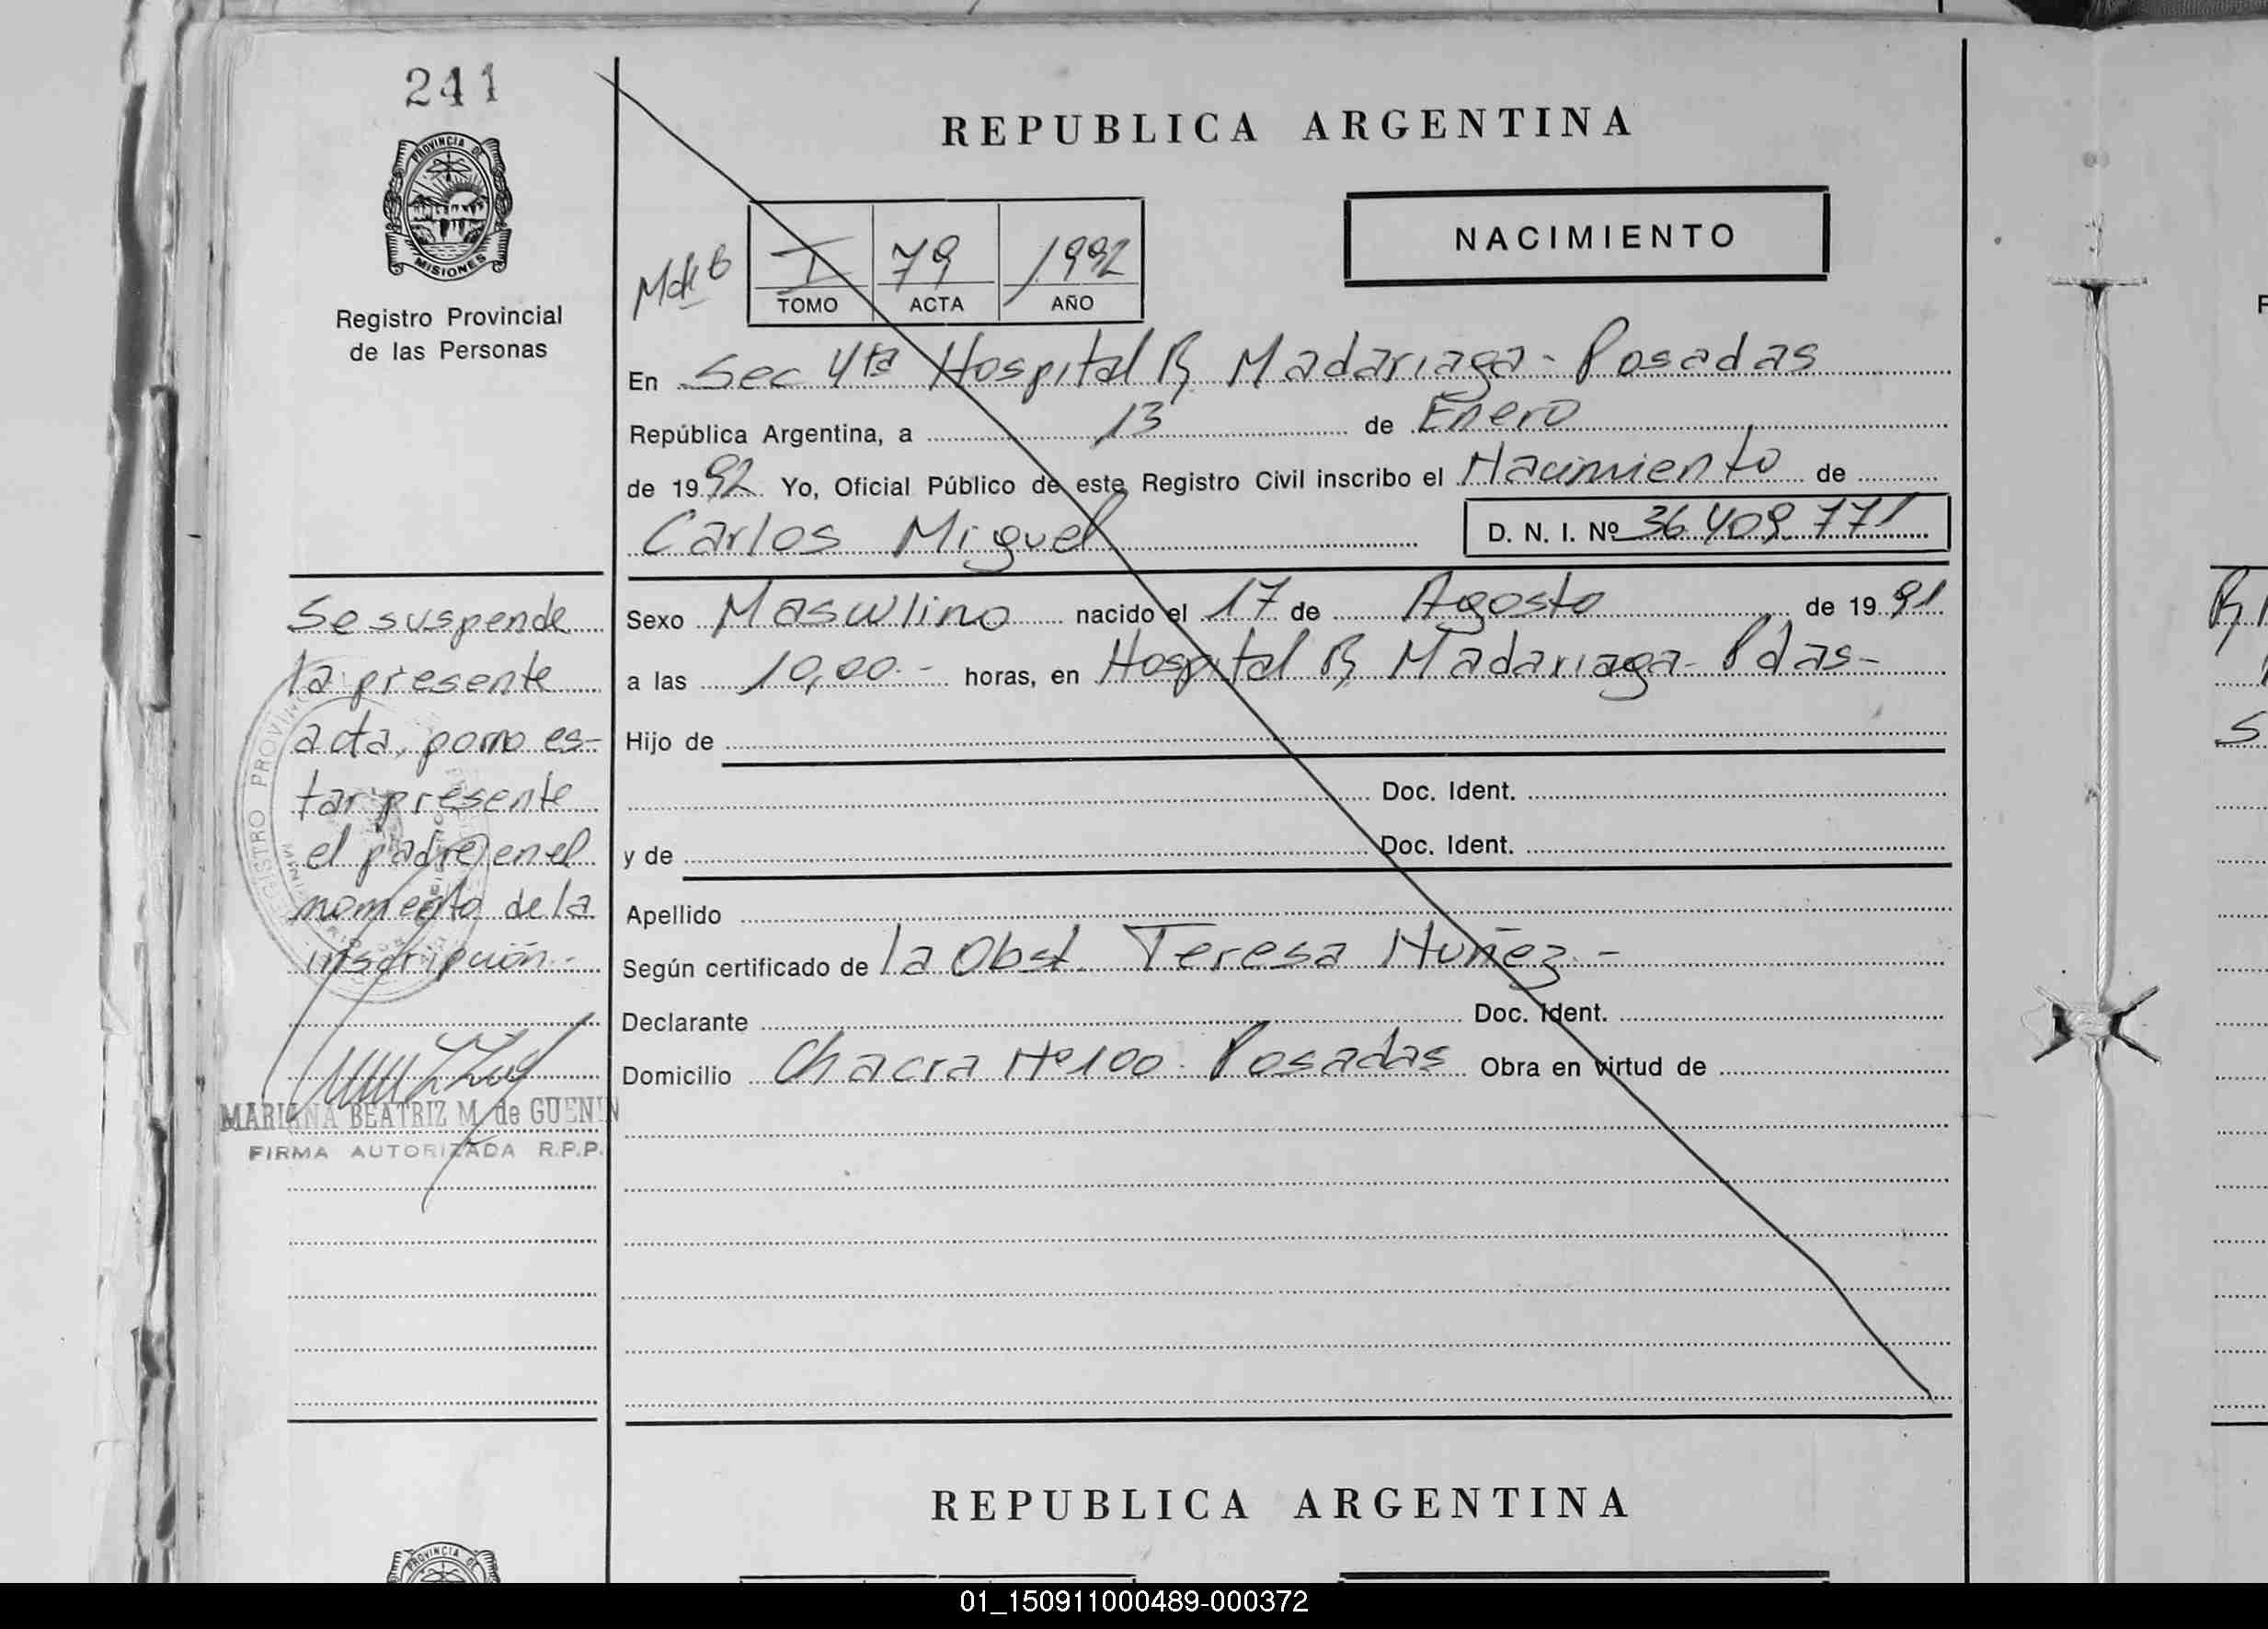 241
PROVINCIA DE
MISIONES
Registro Provincial
de las Personas
REPUBLICA ARGENTINA
NACIMIENTO
I 79 1992
TOMO ACTA AÑO
En Sec 4ta Hospital R, Madariaga - Posadas
República Argentina, a 13 de Enero
de 1992 Yo, Oficial Público de este Registro Civil inscribo el Nacimiento de
Carlos Miguel D. N. I. Nº 36.409.771
Sexo Masculino nacido el 17 de Agosto de 1991
a las 10,00.- horas, en Hospital R, Madariaga - Pdas-
Hijo de
Doc. Ident.
y de Doc. Ident.
Apellido
Según certificado de la Obst. Teresa Nuñez.-
Declarante Doc. Ident.
Domicilio Chacra Nº 100. Posadas Obra en virtud de
Se suspende
la presente
acta, porno es-
tar presente
el padre en el
momento de la
inscripción.-
MARIANA BEATRIZ M. de GUENIN
FIRMA AUTORIZADA R.P.P.
REPUBLICA ARGENTINA
PROVINCIA DE
01_150911000489-000372